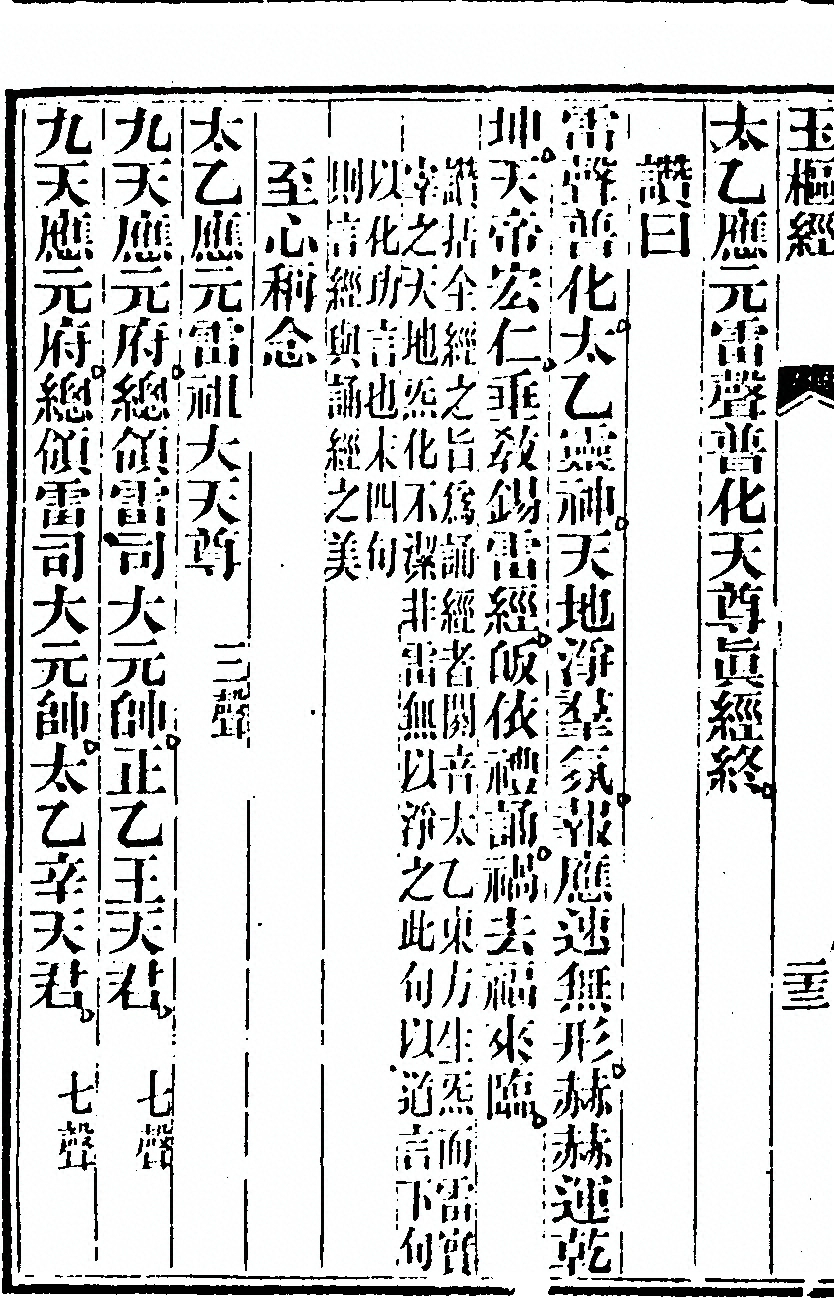 玉樞經
太乙應元雷聲普化天尊眞經終。
讚曰
雷聲普化。太乙靈神。天地淨羣氛。報應速無形。赫赫運乾
坤。天帝宏仁。垂敎錫雷經。皈依禮誦。禍去福來臨。
讚括全經之旨爲誦經者闡音太乙東方生炁而雷實
宰之天地炁化不潔非雷無以淨之此句以道言下句
以化功言也末四句
則言經與誦經之美
至心稱念
太乙應元雷祖大天尊 三聲
九天應元府。總領雷司大元帥。正乙王天君。 七聲
九天應元府。總領雷司大元帥。太乙辛天君。 七聲